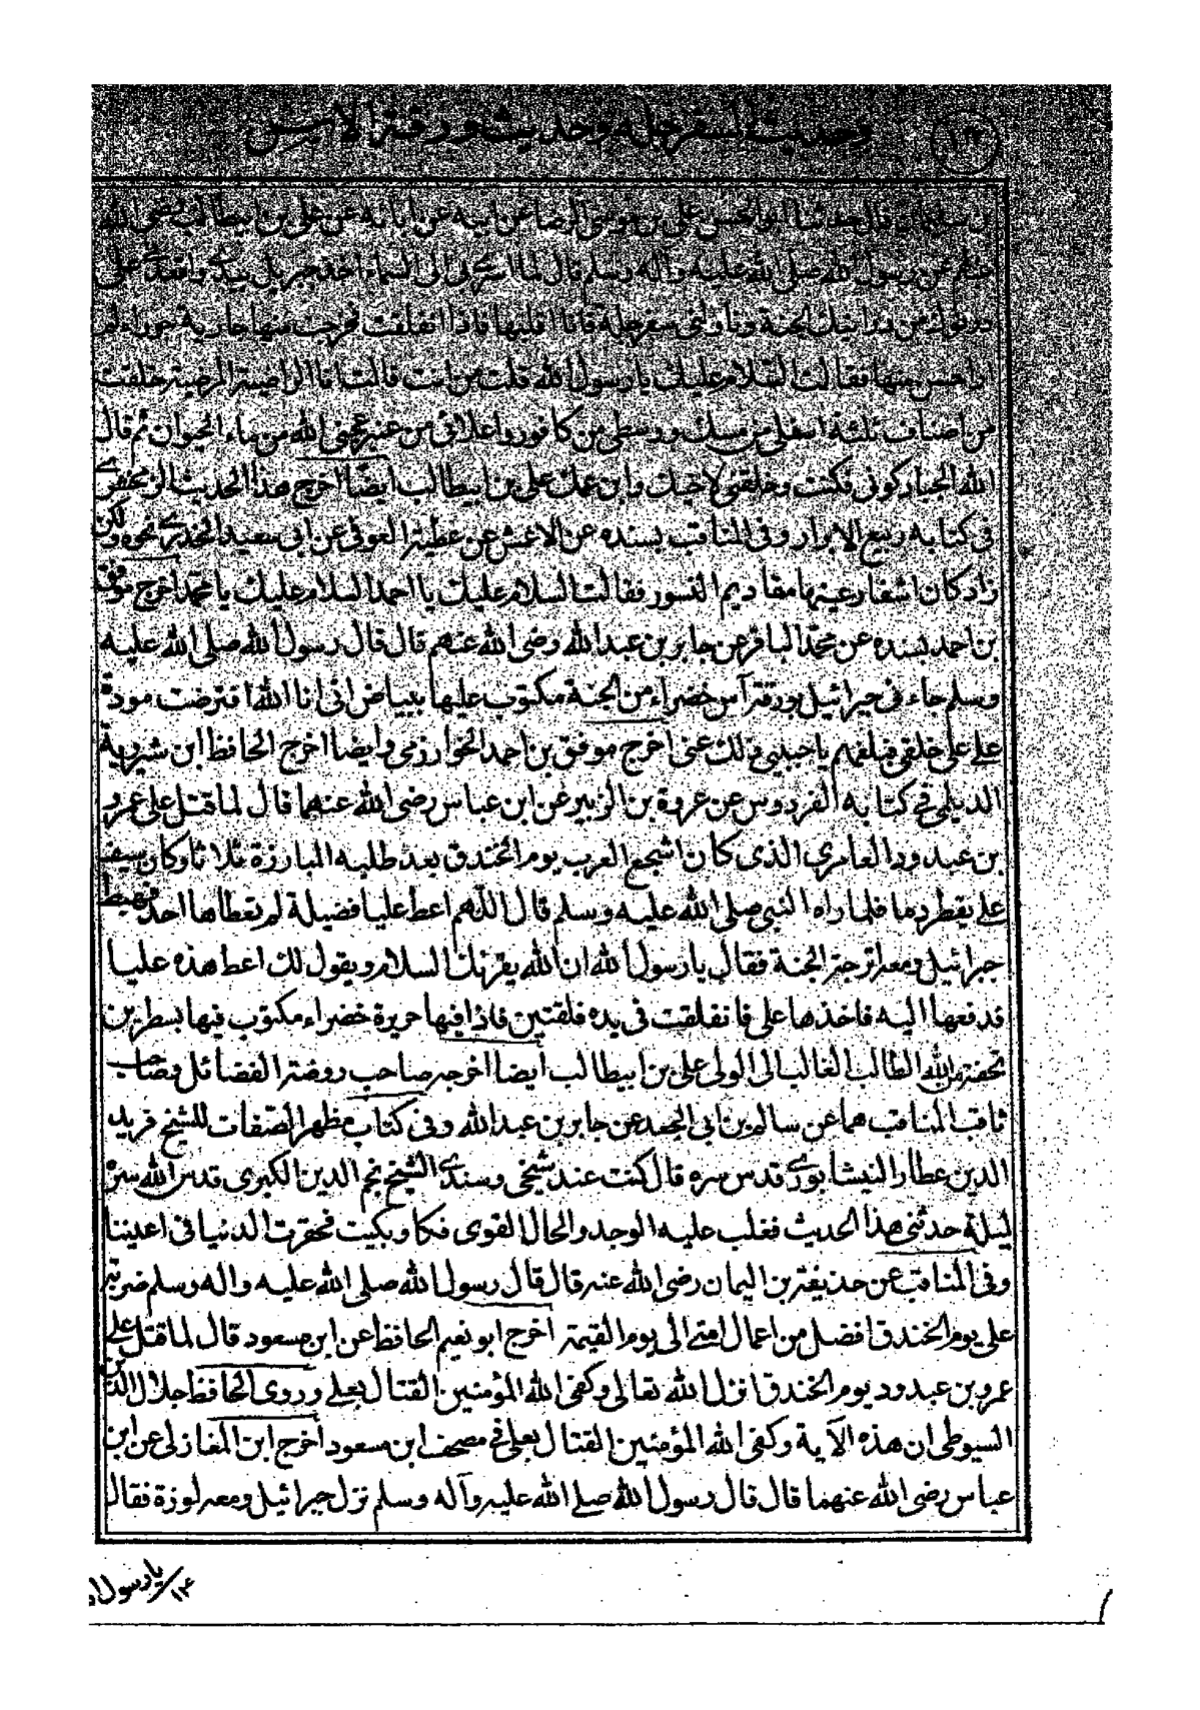 وحديث السفرجلة وحديث ورقة الاس
بن سليمان قال حدثنا ابوالحسن على بن موسى الرضا عن ابيه عن ابائه عن على بن ابيطالب رضى الله
عنهم عن رسول الله صلى الله عليه وآله وسلم قال لما اسرى بى الى السماء اخذ جبريل بيدى واقعدنى على
درنوك من درانيك الجنة وناولنى سفرجلة فانا اقلبها فاذا انفلقت فخرجت منها جارية حوراء لم
ار احسن منها فقالت السلام عليك يا رسول الله قلت من انت قالت انا الراضية المرضية خلقت
من اصناف ثلثة اسفلى من مسك ووسطى من كافور واعلائى من عنبر عجننى الله من ماء الحيوان ثم قال
الله الجبار كونى فكنت وخلقنى لاخيك وابن عمك على بن ابيطالب ايضا اخرج هذا الحديث الزمخشرى
فى كتابه ربيع الابرار وفى المناقب بسنده عن الاعمش عن عطية العوفى عن ابى سعيد الخدرى نحوه ولكن
زاد كان اشفار عينها مقاديم النسور فقالت السلام عليك يا احمد السلام عليك يا محمد اخرج موفق
بن احمد بسنده عن محمد الباقر عن جابر بن عبدالله رضى الله عنهم قال قال رسول الله صلى الله عليه
وسلم جاء نى جبرائيل بورقة آس خضراء من الجنة مكتوب عليها ببياض انى انا الله افترضت مودة
على على خلقى فبلغهم يا حبيبى ذلك عنى اخرج موفق بن احمد الخوارزمى وايضا اخرج الحافظ ابن شيروية
الديلمى فى كتابه الفردوس عن عروة بن الزبير عن ابن عباس رضى الله عنهما قال لما قتل على عمرو
بن عبدود العامرى الذى كان اشجع العرب يوم الخندق بعد طلبه المبارزة ثلاثا وكان سيف
على يقطر دما فلما راه النبى صلى الله عليه وسلم قال اللهم اعط عليا فضيلة لم تعطاها احد فهبط
جبرائيل ومعه اترجة الجنة فقال يا رسول الله ان الله يقرئك السلام ويقول لك اعط هذه عليا
فدفعها اليه فاخذها على فانفلقت فى يده فلقتين فاذا فيها حريرة خضراء مكتوب فيها بسطرين
تحفة من الله الطالب الغالب الى الولى على بن ابيطالب ايضا اخرجه صاحب روضة الفضائل وصاحب
ثاقب المناقب هما عن سالم بن ابى الجعد عن جابر بن عبدالله وفى كتاب مظهر الصفات للشيخ فريد
الدين عطار النيشابورى قدس سره قال كنت عند شيخى وسندى الشيخ نجم الدين الكبرى قدس الله سره
ليلة حدثنى هذا الحديث فغلب عليه الوجد والحال القوى فبكا وبكيت فحقرت الدنيا فى اعيننا
وفى المناقب عن حذيفة بن اليمان رضى الله عنه قال قال رسول الله صلى الله عليه واله وسلم ضربة
على يوم الخندق افضل من اعمال امتى الى يوم القيمة اخرج ابو نعيم الحافظ عن ابن مسعود قال لما قتل على
عمرو بن عبدود يوم الخندق انزل الله تعالى وكفى الله المؤمنين القتال بعلى وروى الحافظ جلال الدين
السيوطى ان هذه الآية وكفى الله المؤمنين القتال بعلى فى مصحف ابن مسعود اخرج ابن المغازلى عن ابن
عباس رضى الله عنهما قال قال رسول الله صلى الله عليه وآله وسلم نزل جبرائيل ومعه لوزة فقال
يا رسول